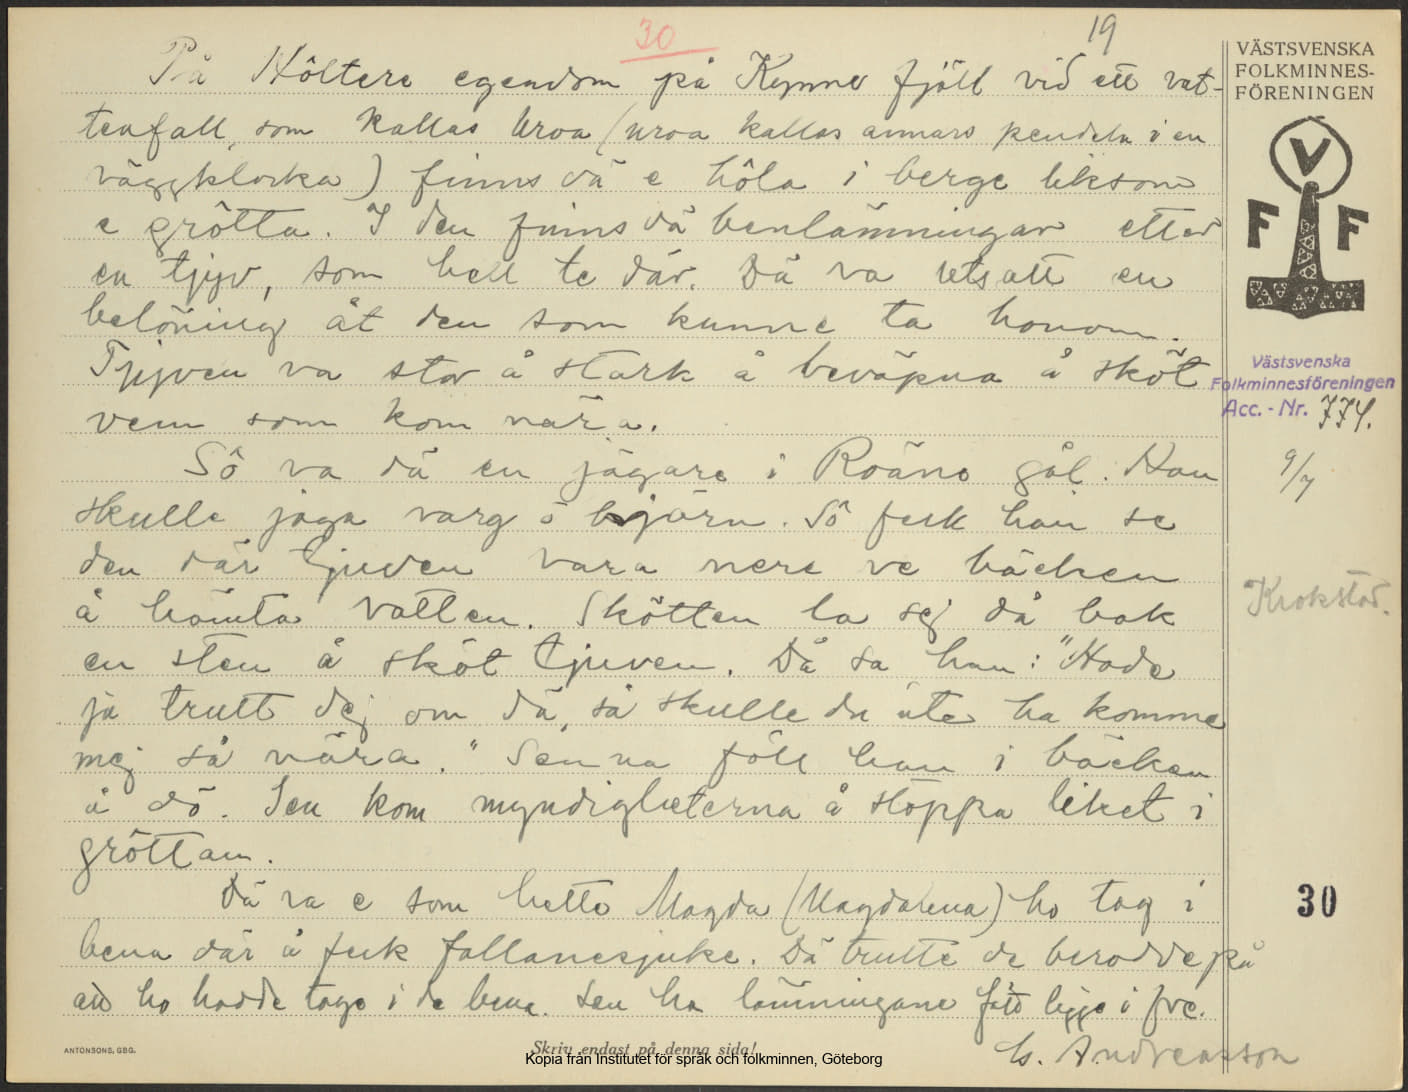 30
19
På Hôltere egendom på Kynne fjäll vid ett vat-
tenfall, som kallas Uroa (uroa kallas annars pendeln i en
väggklocka) finns dä e hôla i berge liksom
e grôtta. I den finns dä benlämningar etter
en tjyv, som hell te där. Dä va utsatt en
belöning åt den som kunne ta honom.
Tjyven va stor å stark å beväpna å sköt
vem som kom nära.
Sô va dä en jägare i Roäne gål. Han
skulle jaga varg ô björn. Sô feck han se
den där tjuven vara nere ve bäcken
å hämta vatten. Skötten la sej då bak
en sten å sköt tjuven. Då sa han: "Hade
ja trutt dej om dä, så skulle du inte ha komme
mej så nära." Senna föll han i bäcken
å dö. Sen kom myndigheterna å stoppa liket i
grôttan.
Dä va e som hette Magda (Magdalena) ho tog i
bena där å feck fallanesjuke. Dä trutte de berodde på
att ho hadde tage i de bena. Sen ha lämningane fått ligge i fre.
G. Andreasson
VÄSTSVENSKA
FOLKMINNES-
FÖRENINGEN
V
F F
Västsvenska
Folkminnesföreningen
Acc. - Nr. 774.
9/7
Krokstad.
30
ANTONSONS, GBG.
Skriv endast på denna sida!
Kopia från Institutet för språk och folkminnen, Göteborg